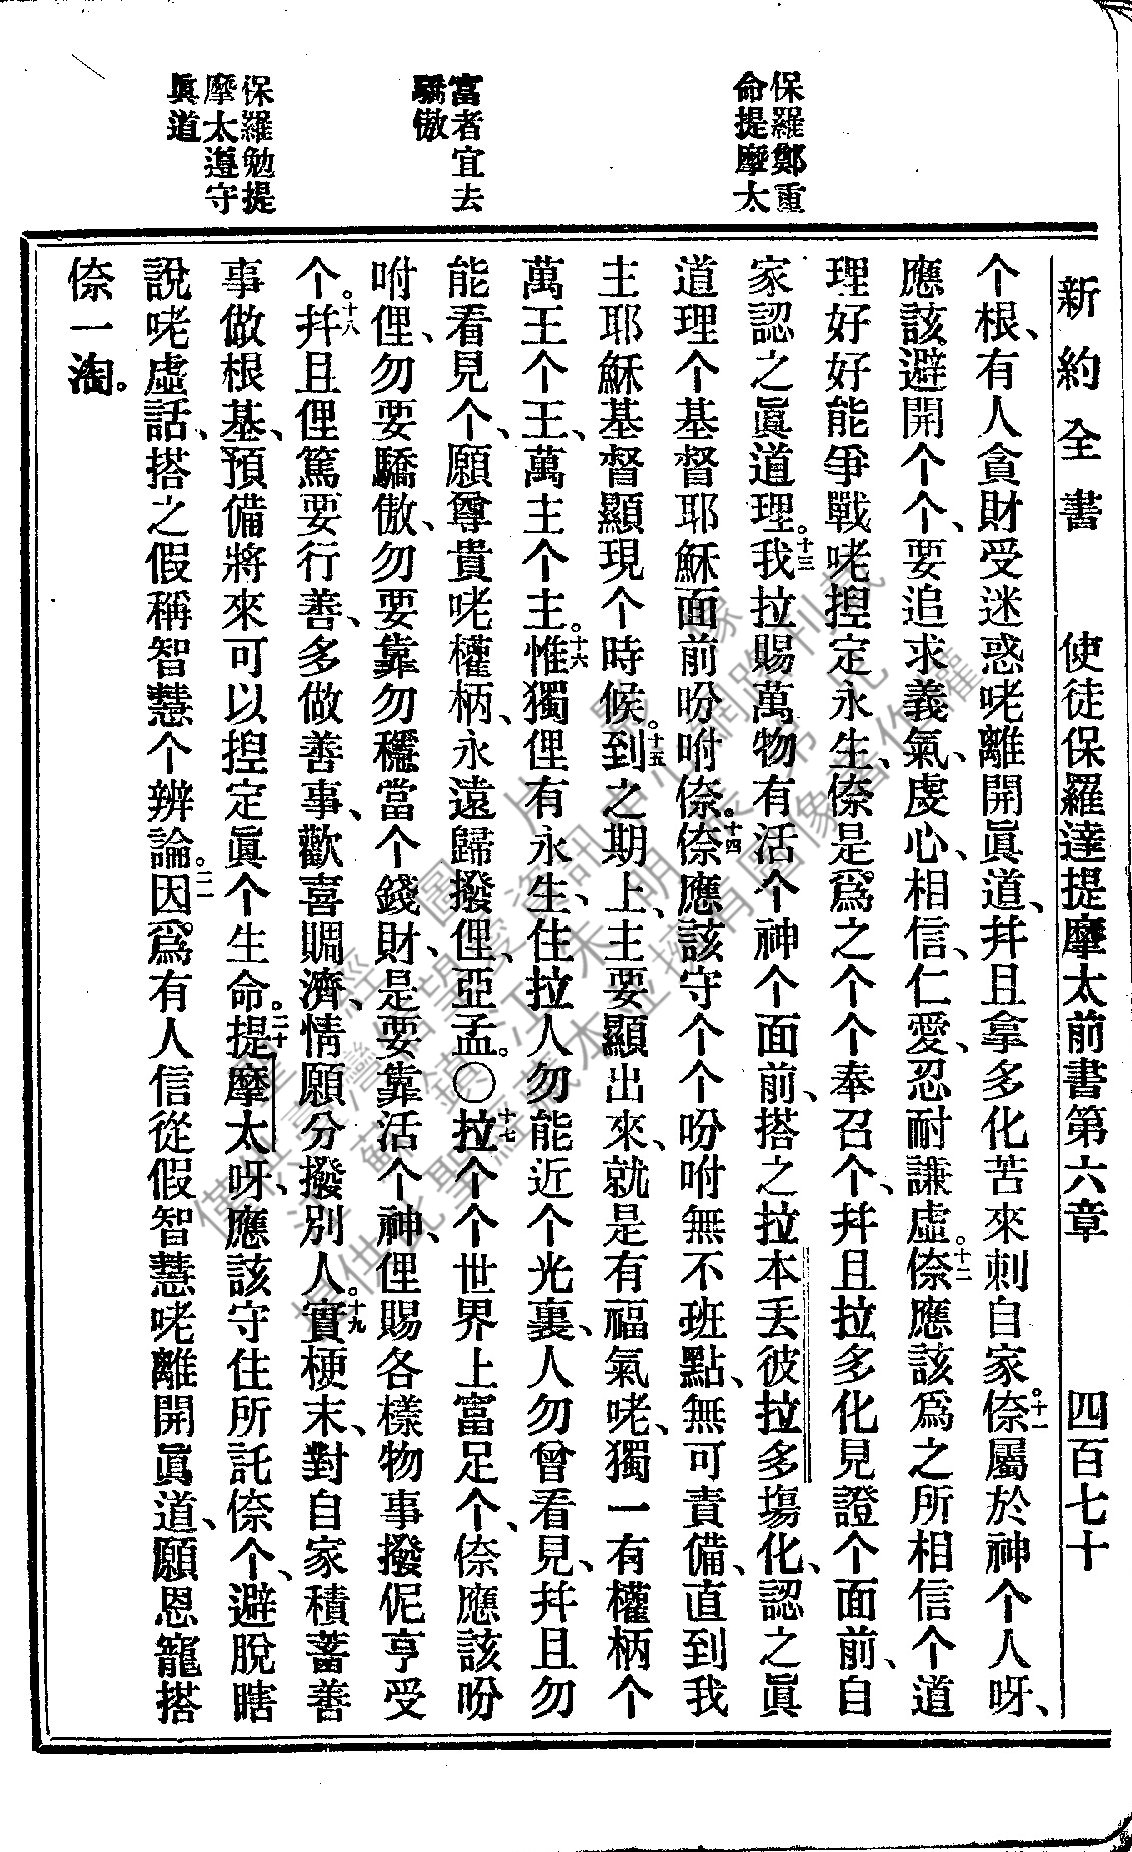 新約全書 使徒保羅達提摩太前書第六章 四百七十
保羅鄭重
命提摩太
富者宜去
驕傲
保羅勉提
摩太遵守
眞道
个根、有人貪財受迷惑咾離開眞道、幷且拿多化苦來刺自家。十一㑚屬於神个人呀、
應該避開个个、要追求義氣、虔心、相信、仁愛、忍耐謙虛。十二㑚應該爲之所相信个道
理好好能爭戰咾揑定永生、㑚是爲之个个奉召个、幷且拉多化見證个面前、自
家認之眞道理。十三我拉賜萬物有活个神个面前、搭之拉本丢彼拉多塲化、認之眞
道理个基督耶穌面前吩咐㑚。十四㑚應該守个个吩咐無不班點、無可責備、直到我
主耶穌基督顯現个時候。十五到之期上、主要顯出來、就是有福氣咾、獨一有權柄个
萬王个王、萬主个主。十六惟獨俚有永生、住拉人勿能近个光裏、人勿曾看見、幷且勿
能看見个、願尊貴咾權柄、永遠歸撥俚、亞孟。〇十七拉个个世界上富足个、㑚應該吩
咐俚、勿要驕傲、勿要靠勿穩當个錢財、是要靠活个神、俚賜各樣物事撥伲亨受
个。十八幷且俚篤要行善、多做善事、歡喜賙濟、情願分撥別人。十九實梗末、對自家積蓄善
事做根基、預備將來可以揑定眞个生命。二十提摩太呀、應該守住所託㑚个、避脫瞎
說咾虛話、搭之假稱智慧个辨論。二一因爲有人信從假智慧咾離開眞道、願恩寵搭
㑚一淘。
僅供臺灣信望愛資訊中心網路刊載